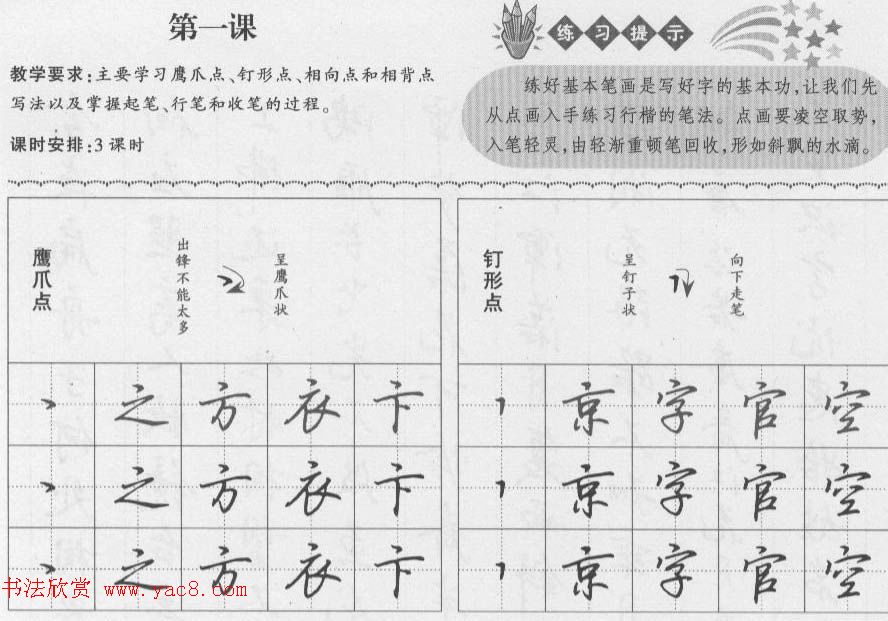 第一课
教学要求:主要学习鹰爪点、钉形点、相向点和相背点
写法以及掌握起笔、行笔和收笔的过程。
课时安排:3课时
练习提示
练好基本笔画是写好字的基本功,让我们先
从点画入手练习行楷的笔法。点画要凌空取势,
入笔轻灵,由轻渐重顿笔回收,形如斜飘的水滴。
鹰爪点
出锋不能太多
呈鹰爪状
丶 之 方 衣 卞
丶 之 方 衣 卞
丶 之 方 衣 卞
钉形点
呈钉子状
向下走笔
丶 京 字 官 空
丶 京 字 官 空
丶 京 字 官 空
书法欣赏 www.yac8.com